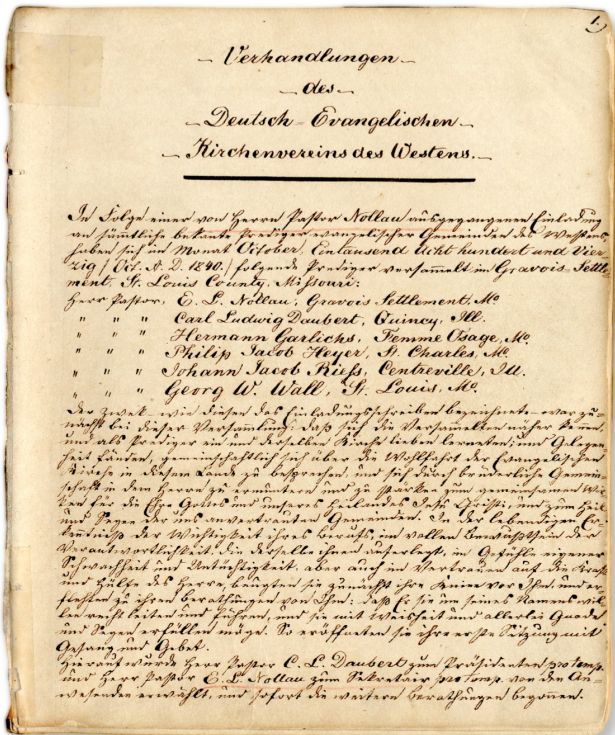 1.)
Verhandlungen
des
Deutsch-Evangelischen
Kirchenvereins des Westens.
In Folge einer von Herrn Pastor Nollau ausgegangenen Einladung
an sämtliche bekante Prediger evangelischer Gemeinden des Westens
haben sich im Monat October, Eintausend Acht hundert und Vier-
zig / Oct. A. D. 1840. / folgende Prediger versammelt im Gravois Settle-
ment, St. Louis County, Missouri:
Herr Pastor, E. L. Nollau, Gravois Settlement, Mo.
" " " Carl Ludwig Daubert, Quincy, Ill.
" " " Hermann Garlichs, Femme Osage, Mo.
" " " Philip Jacob Heyer, St. Charles, Mo.
" " " Johann Jacob Riess, Centreville, Ill.
" " " Georg W. Wall, St. Louis, Mo.
Der Zwek – wie diesen das Einladungsschreiben bezeichnete – war zu-
nächst bei dieser Versammlung: daß sich die Versammelten näher kennen
und als Prediger ein und derselben Kirche lieben lerneten; dann Gelegen-
heit fänden, gemeinschaftlich sich über die Wohlfahrt der Evangelischen
Kirche in diesem Lande zu besprechen, und sich durch brüderliche Gemein-
schaft in dem Herrn zu ermuntern und zu stärken zum gemeinsamen Wir-
ken für die Ehre Gottes und unseres Heilandes Jesu Christi, und zum Heil
und Segen der uns anvertrauten Gemeinden. In der lebendigen Er-
kentniß der Wichtigkeit ihres Berufs, im vollen Bewußtsein der
Verantwortlichkeit, die derselbe ihnen auferlegt, im Gefühle eigener
Schwachheit und Untüchtigkeit, aber auch im Vertrauen auf die Kraft
und Hülfe des Herrn, beugten sie zunächst ihre Kniee vor Ihm, und er-
flehten zu ihren Berathungen von Ihm: daß Er sie um seines Namens wil-
len recht leiten und führen, und sie mit Weisheit und allerlei Gnade
und Segen erfüllen möge. So eröffneten sie ihre erste Sitzung mit
Gesang und Gebet.
Hierauf wurde Herr Pastor C. L. Daubert zum Präsidenten pro temp.
und Herr Pastor E. L. Nollau zum Sekretair pro temp. von den An-
wesenden erwählt, und sofort die weitern Berathungen begonnen.